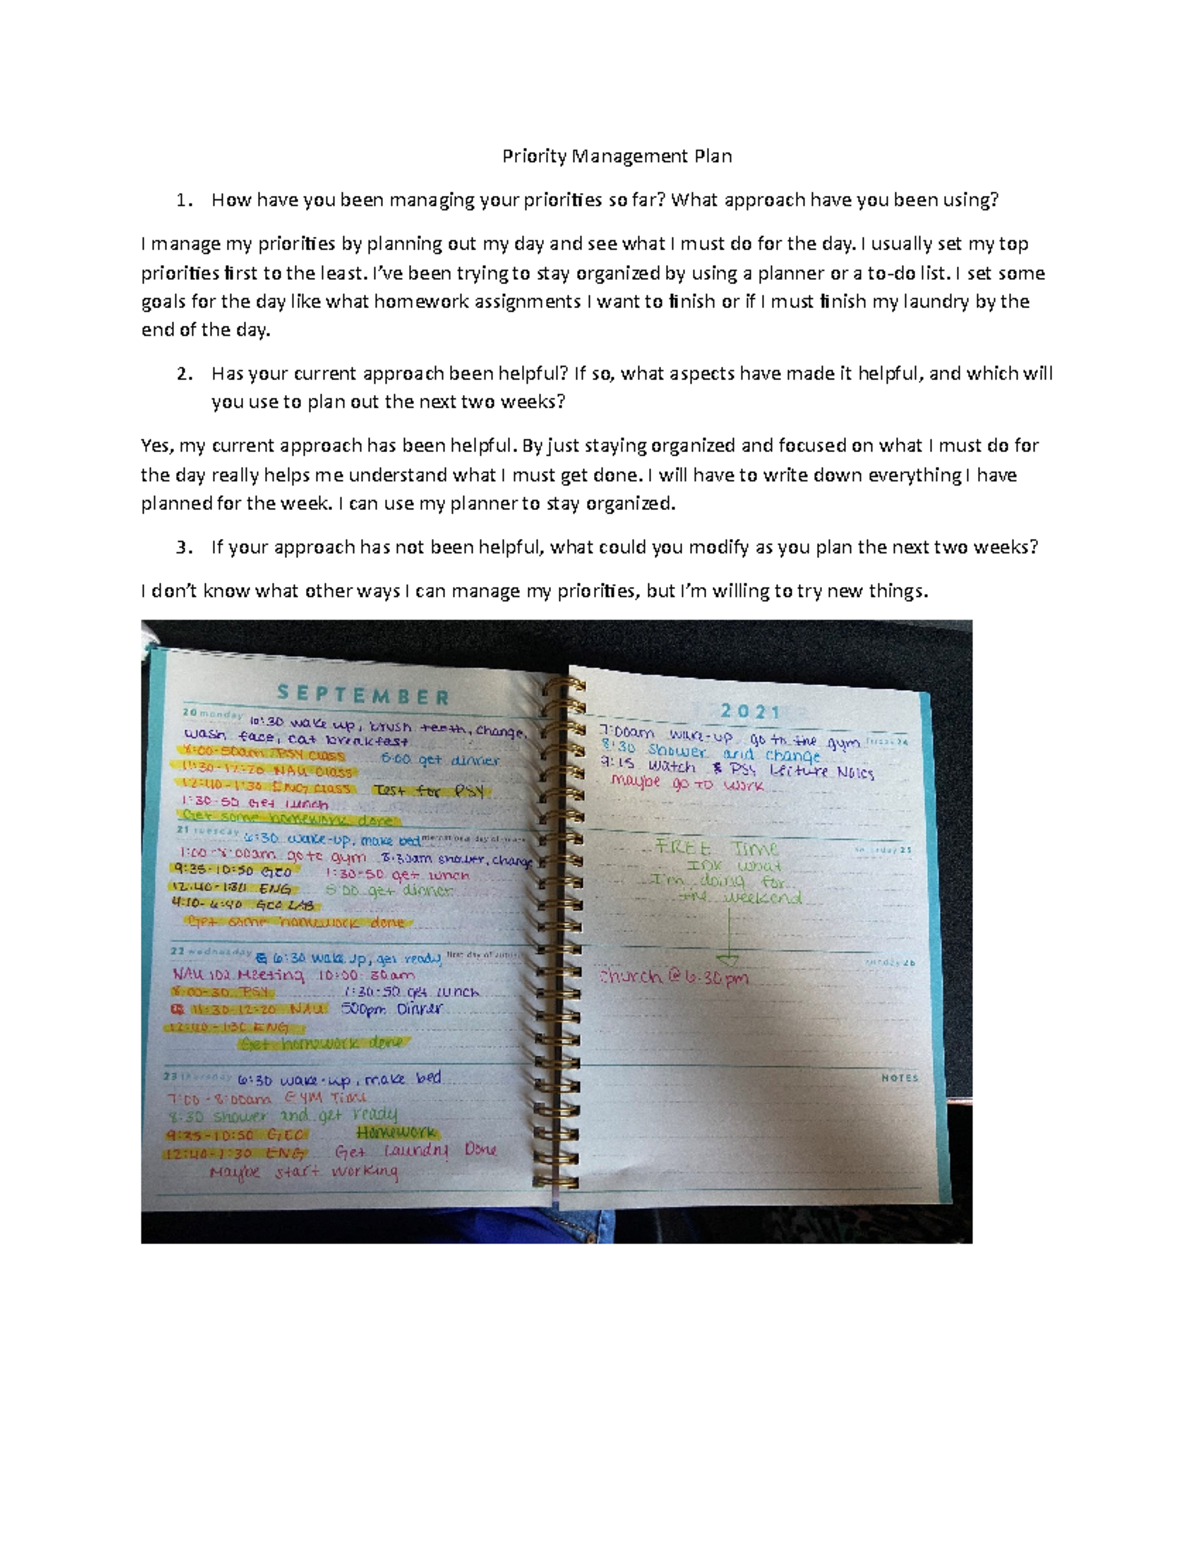 Priority Management Plan
1. How have you been managing your priorities so far? What approach have you been using?
I manage my priorities by planning out my day and see what I must do for the day. I usually set my top
priorities first to the least. I've been trying to stay organized by using a planner or a to-do list. I set some
goals for the day like what homework assignments I want to finish or if I must finish my laundry by the
end of the day.
2. Has your current approach been helpful? If so, what aspects have made it helpful, and which will
you use to plan out the next two weeks?
Yes, my current approach has been helpful. By just staying organized and focused on what I must do for
the day really helps me understand what I must get done. I will have to write down everything I have
planned for the week. I can use my planner to stay organized.
3. If your approach has not been helpful, what could you modify as you plan the next two weeks?
I don't know what other ways I can manage my priorities, but I'm willing to try new things.
SEPTEMBER
20 monday wake up, brush teeth, change,
wash face, eat breakfast
PSY class 5:00 get dinner
11:30-12:20 NAU class
12:40-1:30 ENG class Test for PSY
1:30-50 Get lunch
Get some homework done
21 tuesday 6:30 wake-up, make bed
go to gym 8:30am shower, change
9:35-10:50 GEO 1:30-50 get lunch
12:40-1:30 ENG 5:00 get dinner
GEO LAB
Get some homework done
22 wednesday 6:30 wake up, get ready first day of
NAU 102 Meeting 10:00-30am
8:00-50 PSY 1:30-50 get lunch
11:30-12:20 NAU 500pm Dinner
12:40-1:30 ENG
Get homework done
23 thursday 6:30 wake-up, make bed
7:00-8:00am GYM Time
8:30 shower and get ready
9:35-10:50 GEO Homework
12:40-1:30 ENG Get Laundry Done
Maybe start working
2021
7:00am wake-up go to the gym
8:30 shower and change
9:15 watch PSY Lecture Notes
maybe go to work
FREE Time saturday 25
IDK what
I'm doing for
the weekend
sunday 26
church @ 6:30pm
NOTES